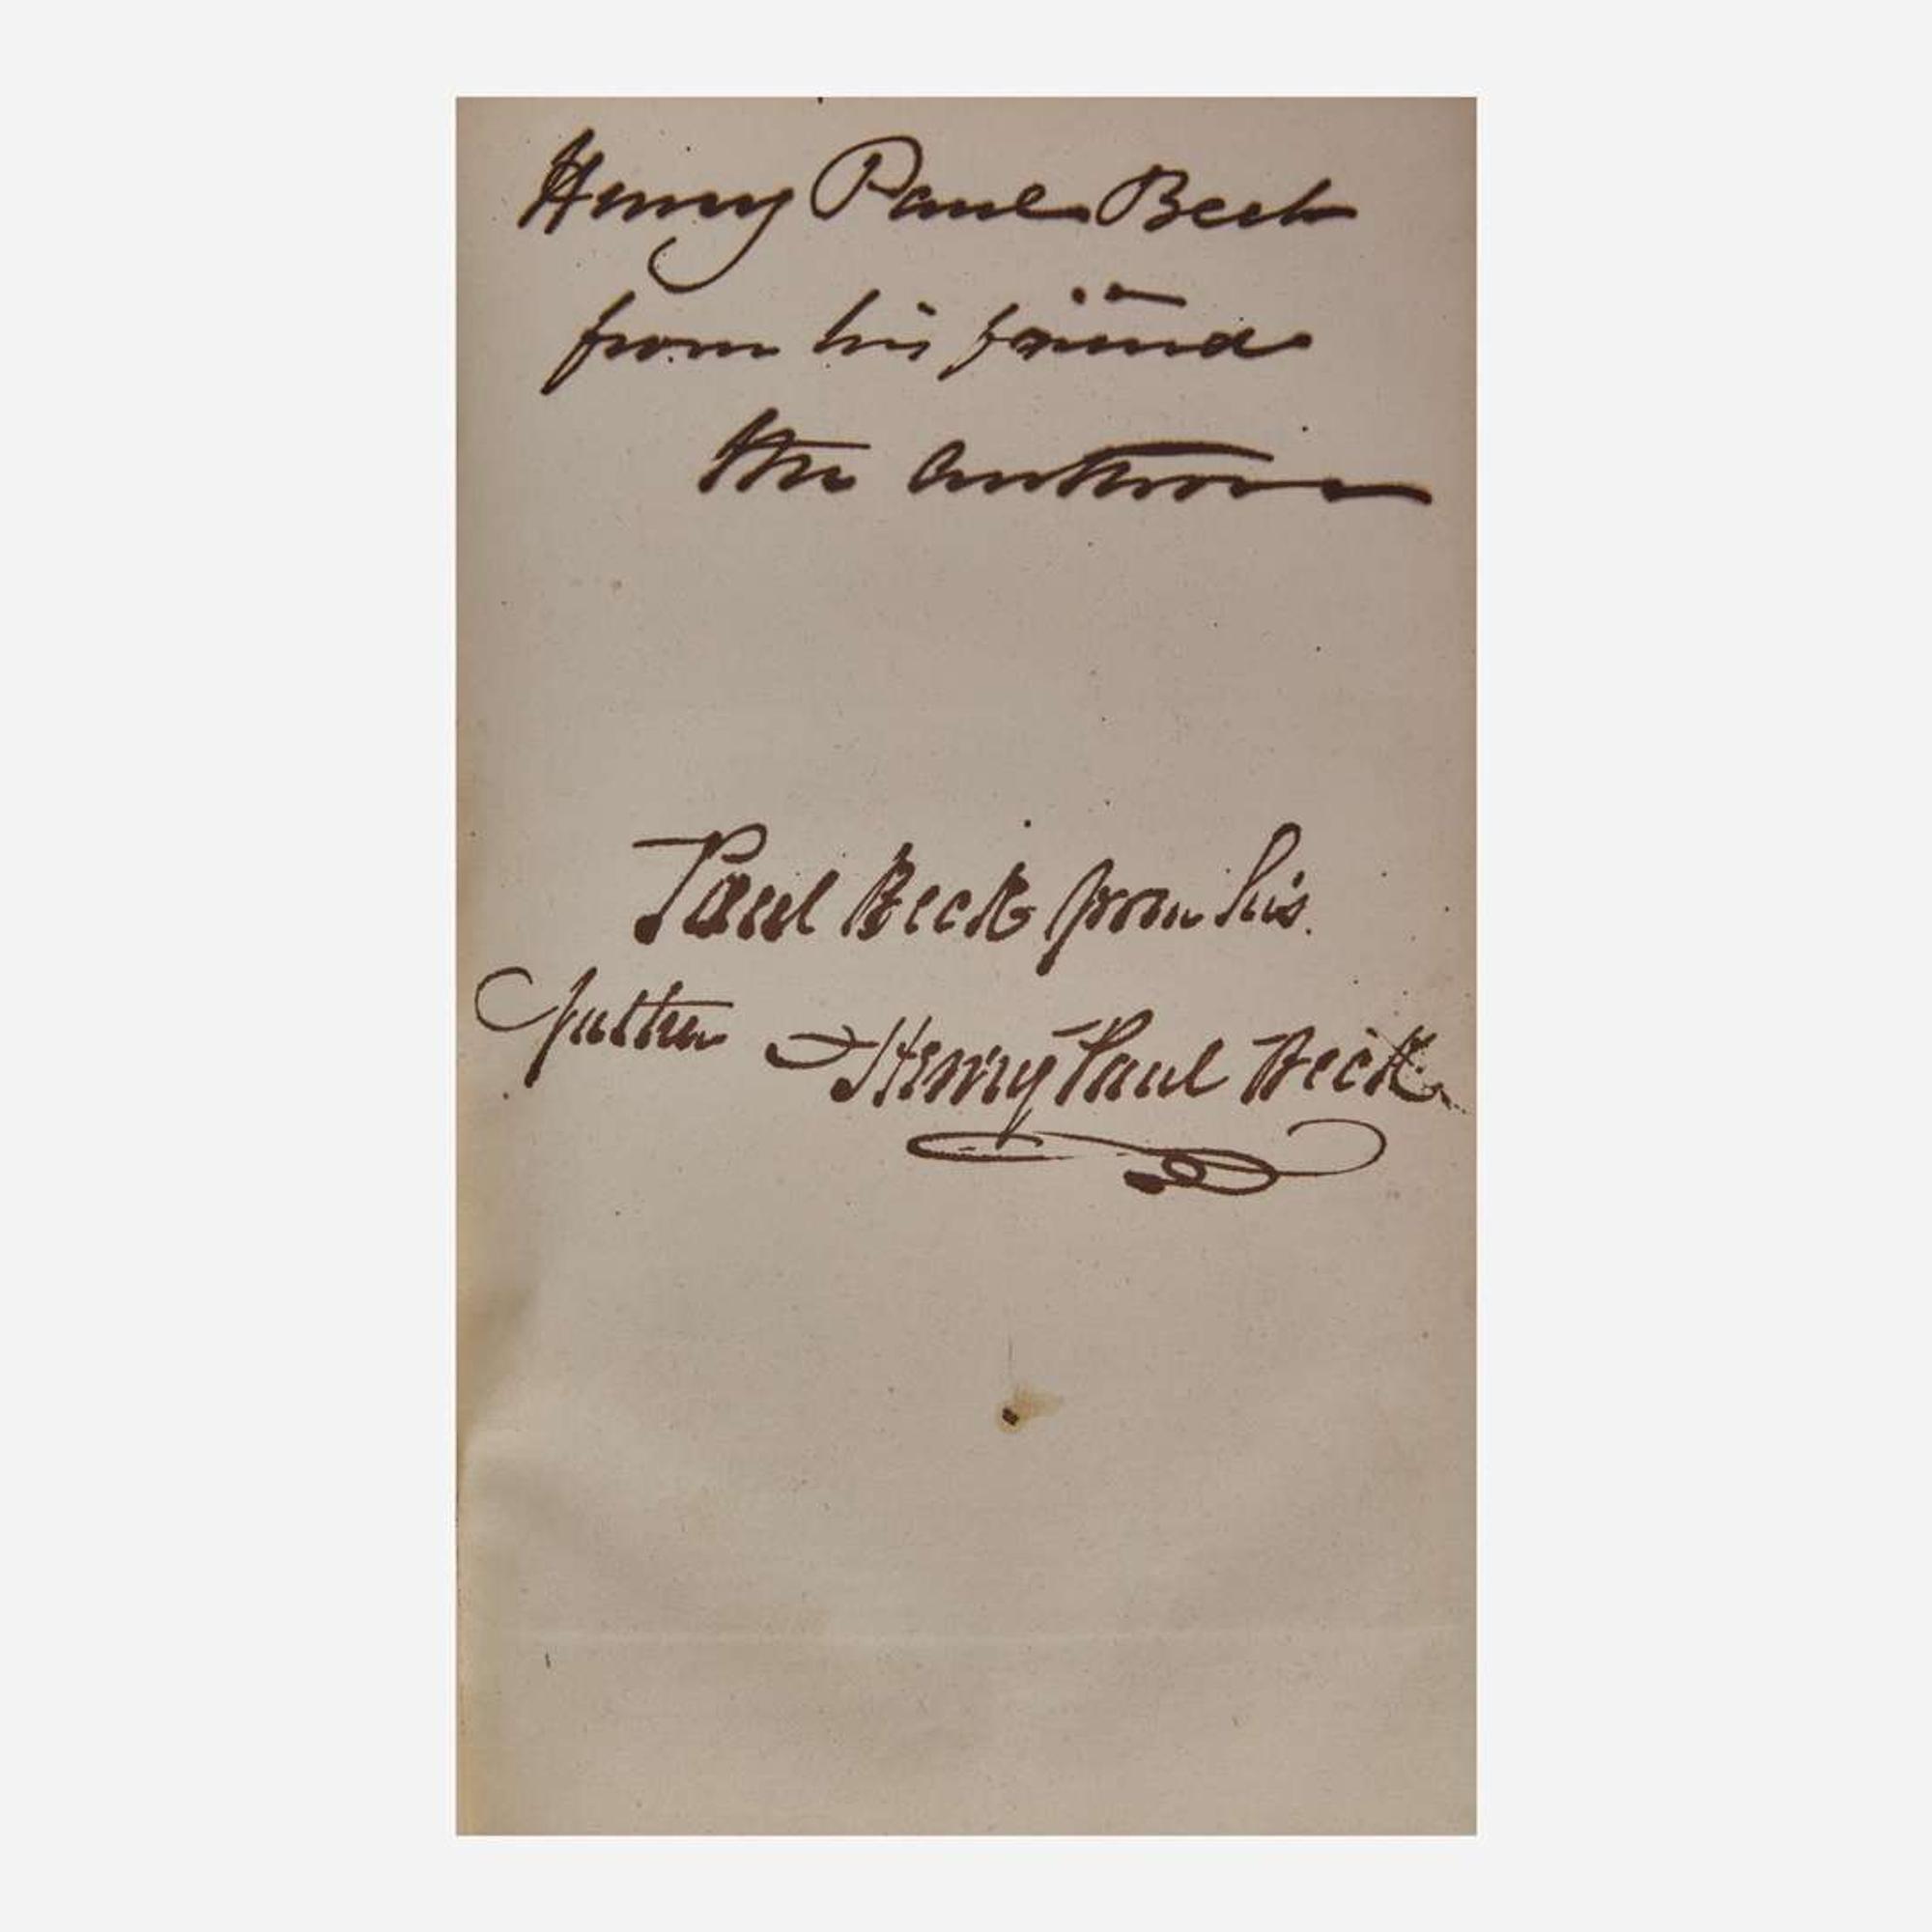 Henry Paul Beck
from his friend
the Author
Paul Beck from his
father Henry Paul Beck